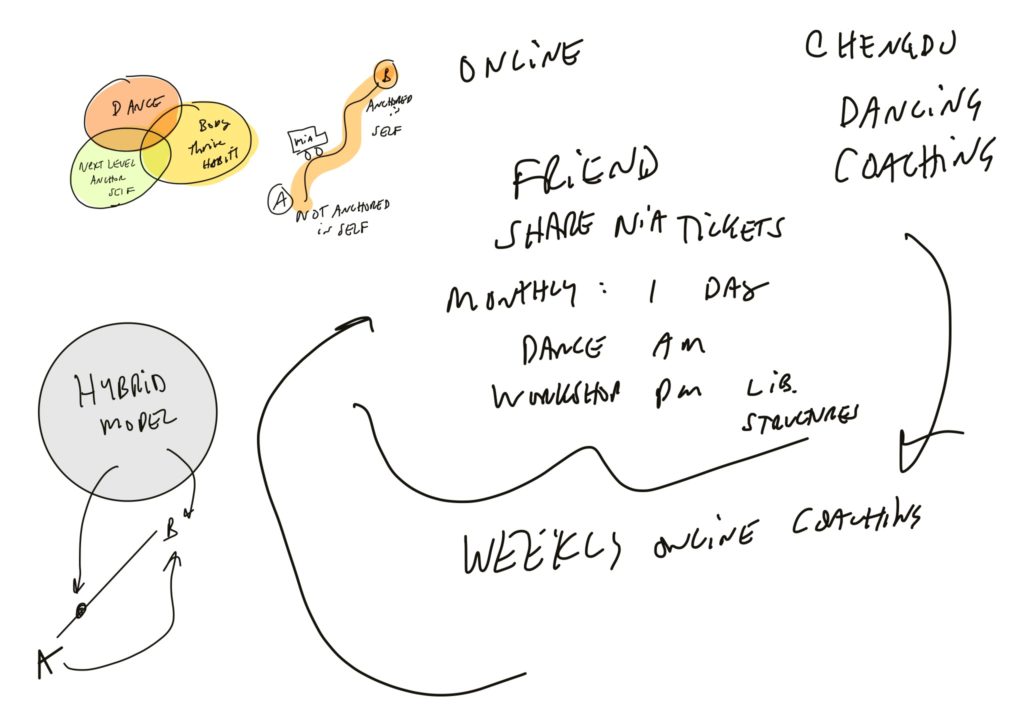 DANCE
BODY
Thrive
HABIT
NEXT LEVEL
ANCHOR
SELF
B
ANCHORED
in
SELF
NiA
A
NOT ANCHORED
in SELF
ONLINE
CHENGDU
DANCING
COACHING
FRIEND
SHARE NiA TICKETS
MONTHLY : 1 DAY
DANCE AM
WORKSHOP PM LiB.
STRUCTURES
HYBRiD
MODEL
B
A
WEEKLY ONLINE COACHING